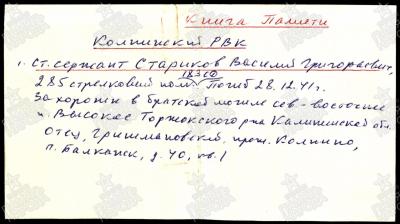 Книга Памяти
Колпинский РВК
1. Ст. сержант Стариков Василий Григорьевич,
183 сд
285 стрелковий полк. Погиб 28.12.41г.
Захоронен в братской могиле сев-восточнее
н. Высокое Торжокского р-на Калининской обл.
Отец, Григорий, прож. Колпино,
п. Балканск, д. 40, кв. 1